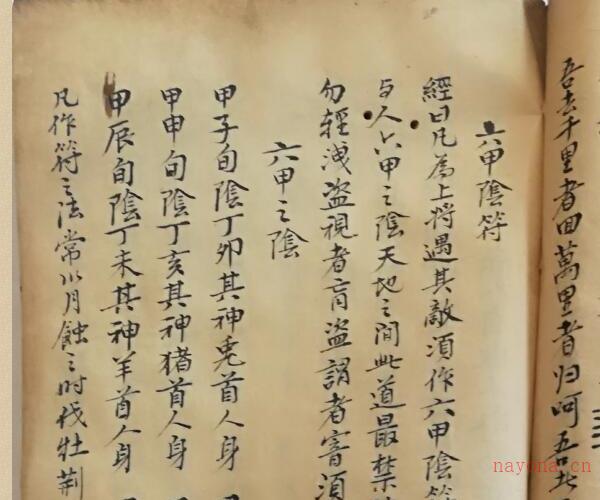 吾去千里者回萬里者归呵吾
六甲陰符
經曰凡為上將遇其敵須作六甲陰符
与人六甲之陰天地之間此道最禁
勿輕洩盜視者盲盜謂者害須
六甲之陰
甲子旬陰丁卯其神兎首人身
甲申旬陰丁亥其神猪首人身
甲辰旬陰丁未其神羊首人身
凡作符之法常以月蝕之时伐牡荆
nayona.cn